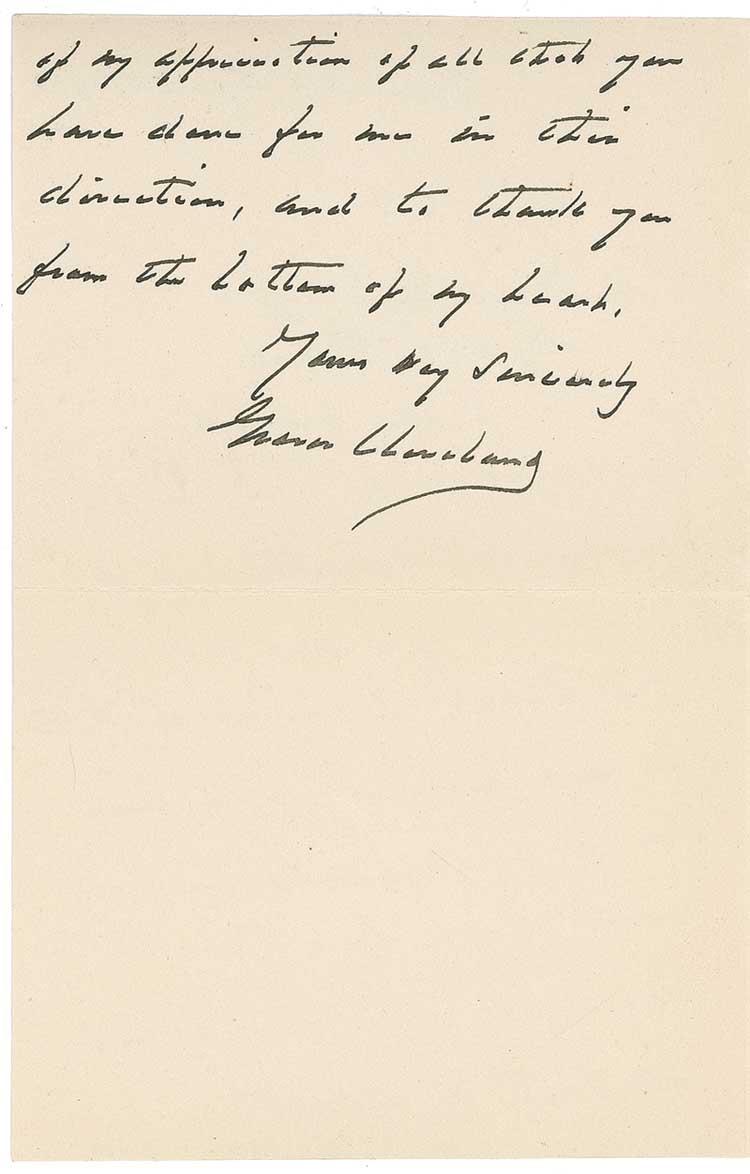 of my appreciation of all that you
have done for me in this
direction, and to thank you
from the bottom of my heart.
Yours very sincerely
Grover Cleveland